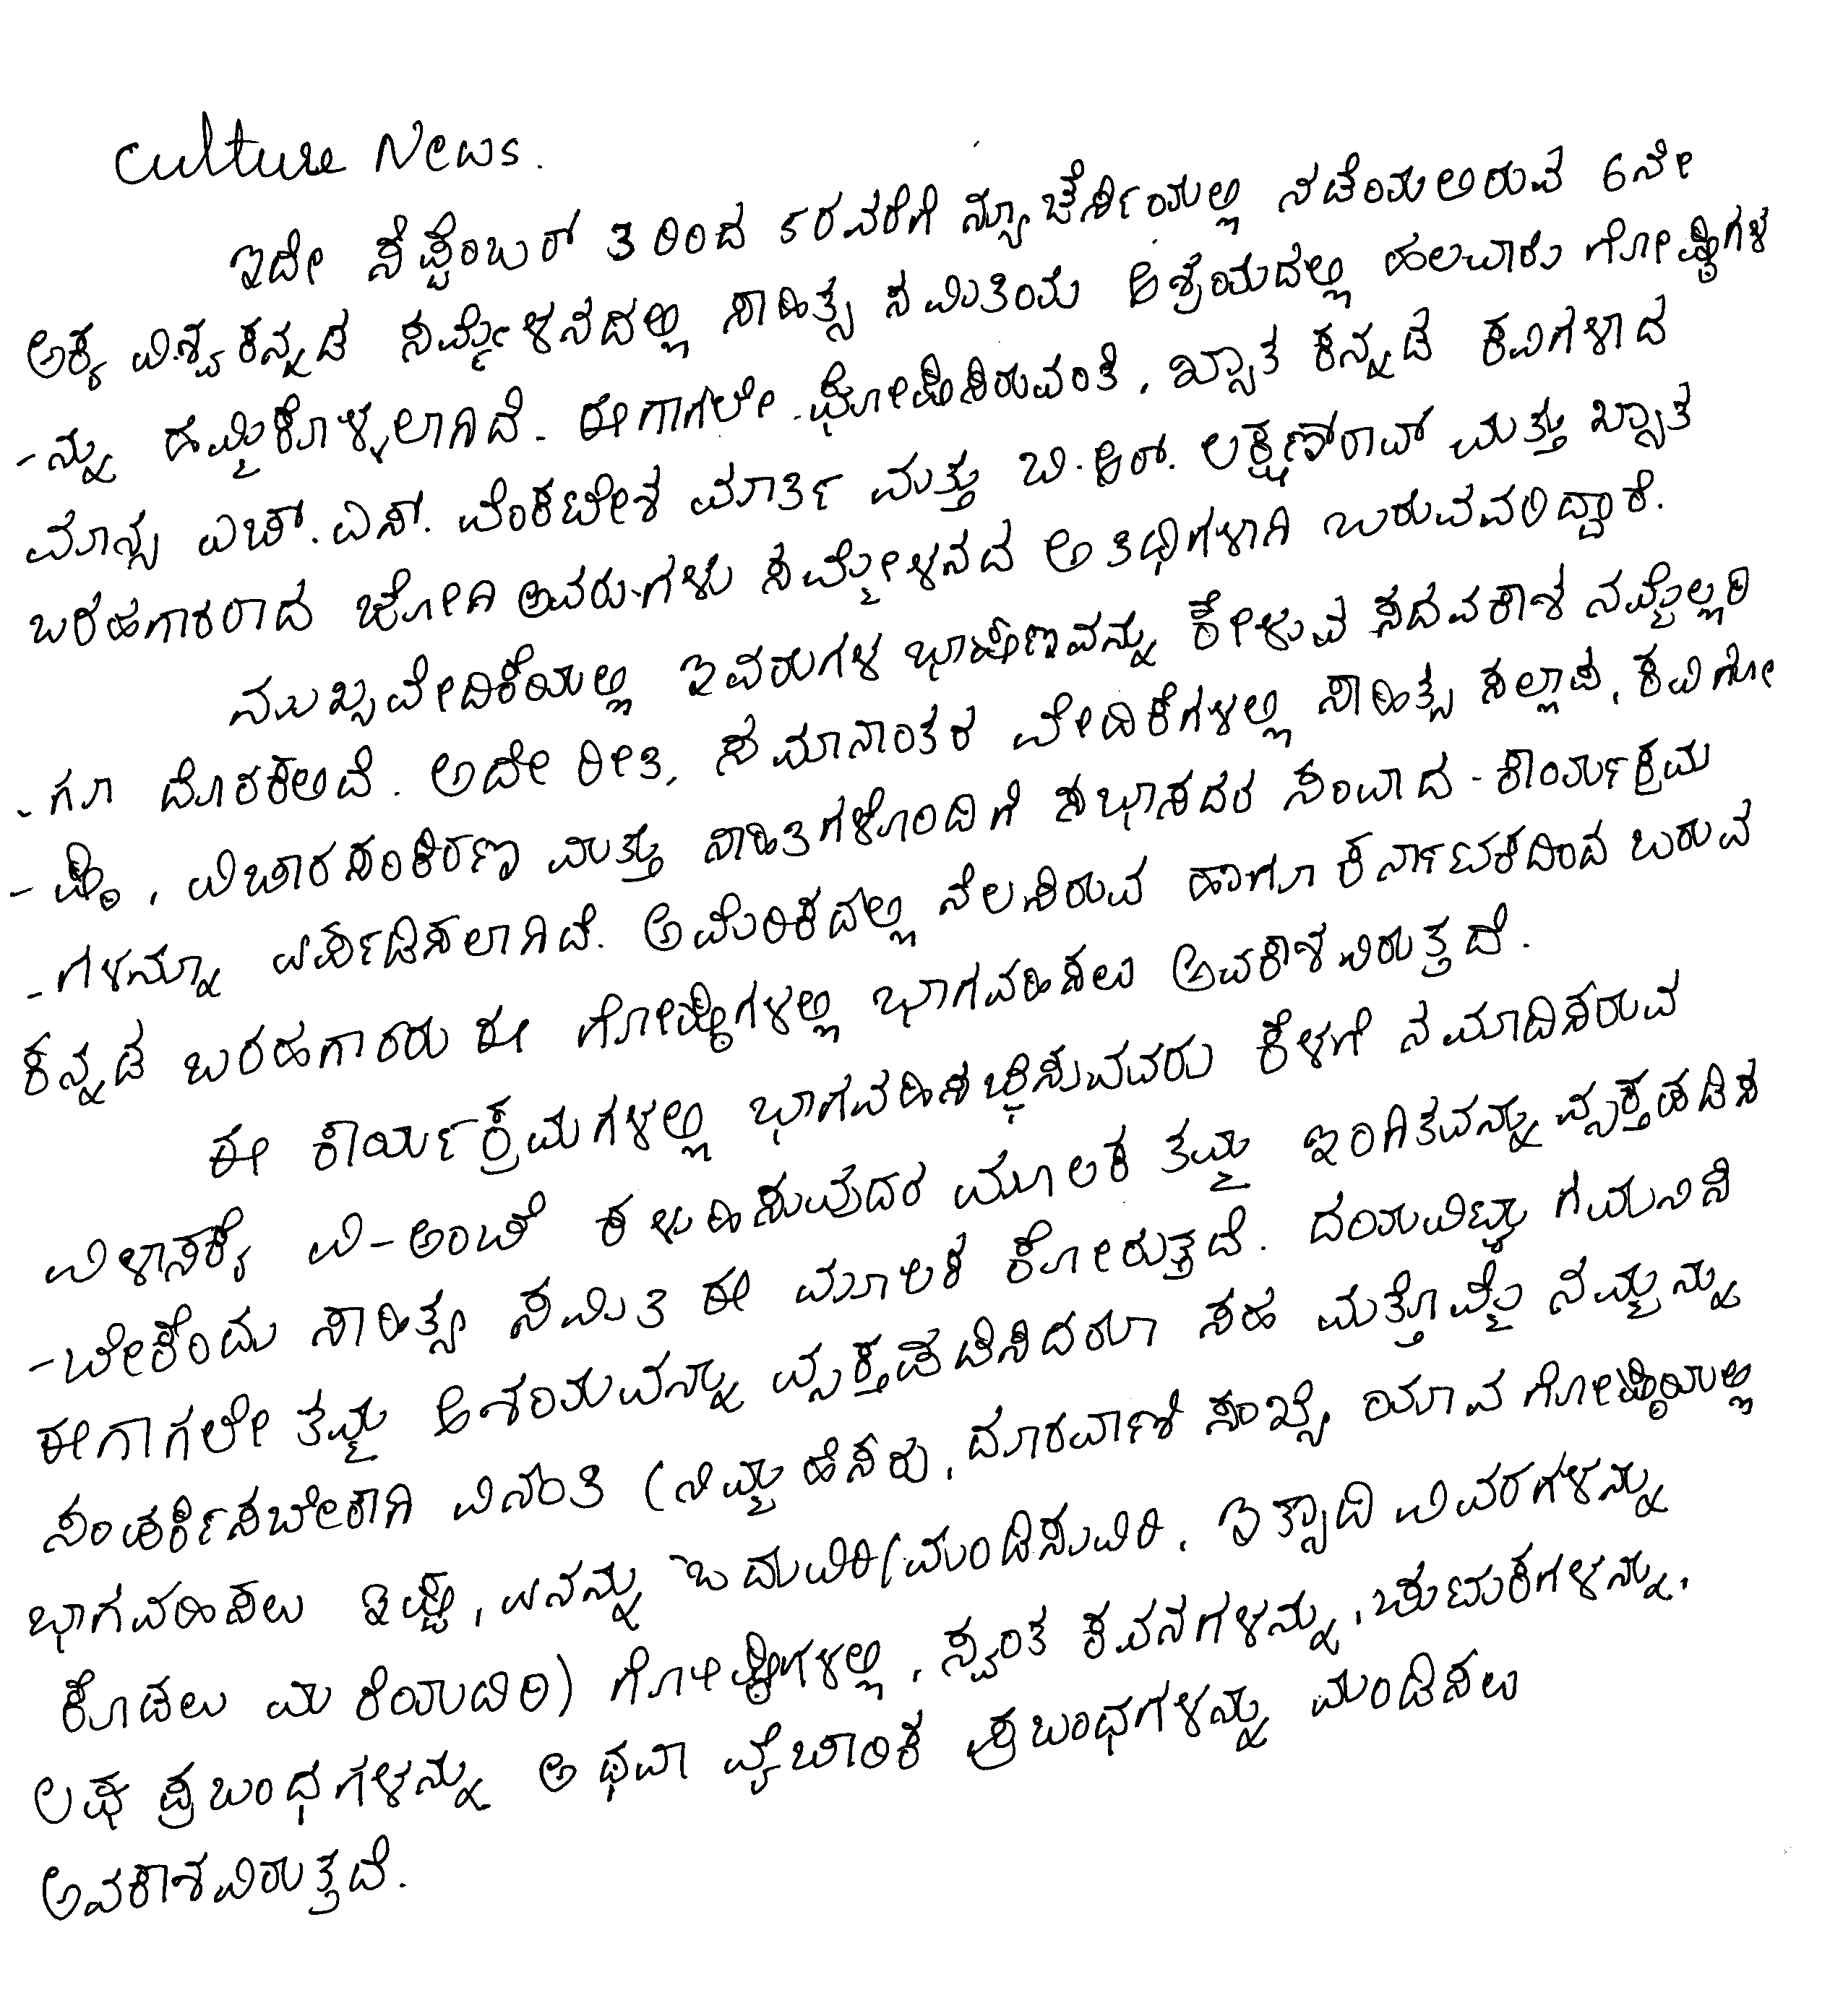 Culture News.
ಇದೇ ಸೆಪ್ಟೆಂಬರ್ 3 ರಿಂದ 5ರವರೆಗೆ ನ್ಯೂಜೆರ್ಸಿಯಲ್ಲಿ ನಡೆಯಲಿರುವ 6ನೇ
ಅಕ್ಕ ವಿಶ್ವಕನ್ನಡ ಸಮ್ಮೇಳನದಲ್ಲಿ ಸಾಹಿತ್ಯ ಸಮಿತಿಯ ಆಶ್ರಯದಲ್ಲಿ ಹಲವಾರು ಗೋಷ್ಠಿಗಳ
-ನ್ನು ಹಮ್ಮಿಕೊಳ್ಳಲಾಗಿದೆ. ಈಗಾಗಲೇ ಘೋಷಿಸಿರುವಂತೆ, ಖ್ಯಾತ ಕನ್ನಡ ಕವಿಗಳಾದ
ಮಾನ್ಯ ಎಚ್.ಎಸ್. ವೆಂಕಟೇಶ ಮೂರ್ತಿ ಮತ್ತು ಬಿ.ಆರ್. ಲಕ್ಷ್ಮಣ್‌ರಾವ್ ಮತ್ತು ಖ್ಯಾತ
ಬರಹಗಾರರಾದ ಜೋಗಿ ಅವರುಗಳು ಸಮ್ಮೇಳನದ ಅತಿಥಿಗಳಾಗಿ ಬರುವವರಿದ್ದಾರೆ.
ಮುಖ್ಯವೇದಿಕೆಯಲ್ಲಿ ಇವರುಗಳ ಭಾಷಣವನ್ನು ಕೇಳುವ ಸದವಕಾಶ ನಮ್ಮೆಲ್ಲರಿ
-ಗೂ ದೊರಕಲಿದೆ. ಅದೇ ರೀತಿ, ಸಮಾನಾಂತರ ವೇದಿಕೆಗಳಲ್ಲಿ ಸಾಹಿತ್ಯ ಸಲ್ಲಾಪ, ಕವಿಗೋ
-ಷ್ಠಿ, ವಿಚಾರಸಂಕಿರಣ ಮತ್ತು ಸಾಹಿತಿಗಳೊಂದಿಗೆ ಸಭಾಸದರ ಸಂವಾದ - ಕಾರ್ಯಕ್ರಮ
-ಗಳನ್ನೂ ಏರ್ಪಡಿಸಲಾಗಿದೆ. ಅಮೆರಿಕದಲ್ಲಿ ನೆಲಸಿರುವ ಹಾಗೂ ಕರ್ನಾಟಕದಿಂದ ಬರುವ
ಕನ್ನಡ ಬರಹಗಾರರು ಈ ಗೋಷ್ಠಿಗಳಲ್ಲಿ ಭಾಗವಹಿಸಲು ಅವಕಾಶವಿರುತ್ತದೆ.
ಈ ಕಾರ್ಯಕ್ರಮಗಳಲ್ಲಿ ಭಾಗವಹಿಸಲಿಚ್ಛಿಸುವವರು ಕೆಳಗೆ ನಮೂದಿಸಿರುವ
ವಿಳಾಸಕ್ಕೆ ವಿ-ಅಂಚೆ ಕಳುಹಿಸುವುದರ ಮೂಲಕ ತಮ್ಮ ಇಂಗಿತವನ್ನು ವ್ಯಕ್ತಪಡಿಸ
-ಬೇಕೆಂದು ಸಾಹಿತ್ಯ ಸಮಿತಿ ಈ ಮೂಲಕ ಕೋರುತ್ತದೆ. ದಯವಿಟ್ಟು ಗಮನಿಸಿ
ಈಗಾಗಲೇ ತಮ್ಮ ಆಶಯವನ್ನು ವ್ಯಕ್ತಪಡಿಸಿದರೂ ಸಹ ಮತ್ತೊಮ್ಮೆ ನಮ್ಮನ್ನು
ಸಂಪರ್ಕಿಸಬೇಕಾಗಿ ವಿನಂತಿ (ನಿಮ್ಮ ಹೆಸರು, ದೂರವಾಣಿ ಸಂಖ್ಯೆ ಯಾವ ಗೋಷ್ಠಿಯಲ್ಲಿ
ಭಾಗವಹಿಸಲು ಇಷ್ಟ, ಏನನ್ನು ಓದುವಿರಿ/ಮಂಡಿಸುವಿರಿ, ಇತ್ಯಾದಿ ವಿವರಗಳನ್ನು
ಕೊಡಲು ಮರೆಯದಿರಿ) ಗೋಷ್ಠಿಗಳಲ್ಲಿ, ಸ್ವಂತ ಕವನಗಳನ್ನು, ಚುಟುಕಗಳನ್ನು,
ಲಘು ಪ್ರಬಂಧಗಳನ್ನು ಅಥವಾ ವೈಚಾರಿಕ ಪ್ರಬಂಧಗಳನ್ನು ಮಂಡಿಸಲು
ಅವಕಾಶವಿರುತ್ತದೆ.